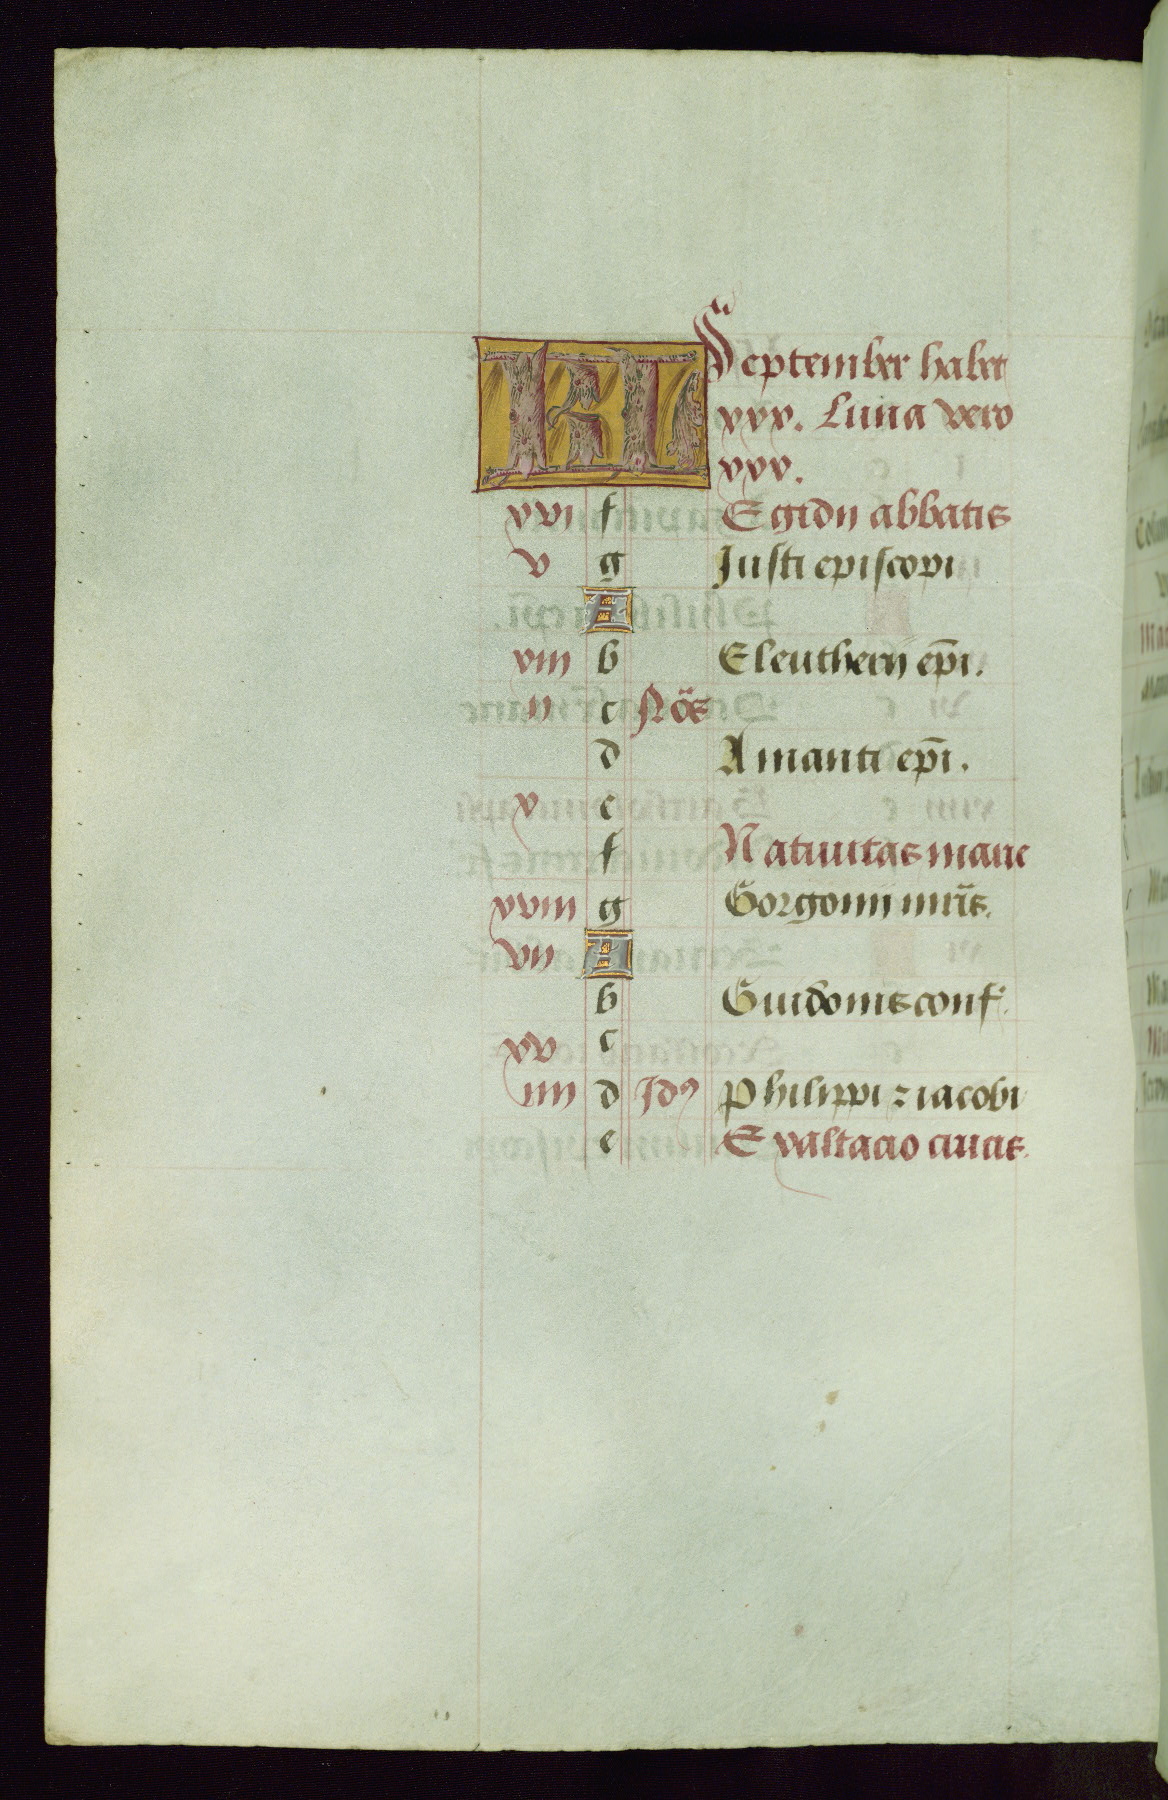 KL September habet
xxx. Luna vero
xxx.
xvi f Egidij abbatis
v g Justi episcopi
A
viii b Eleutherij ep̄i.
ii c Nōs
d Amanti ep̄i.
x e
f Natiuitas marie
xviii g Gorgonij mr̄is.
vii A
b Guidonis conf.
xv c
iiii d Idꝰ Philippi ⁊ iacobi
e Exaltacio crucis.